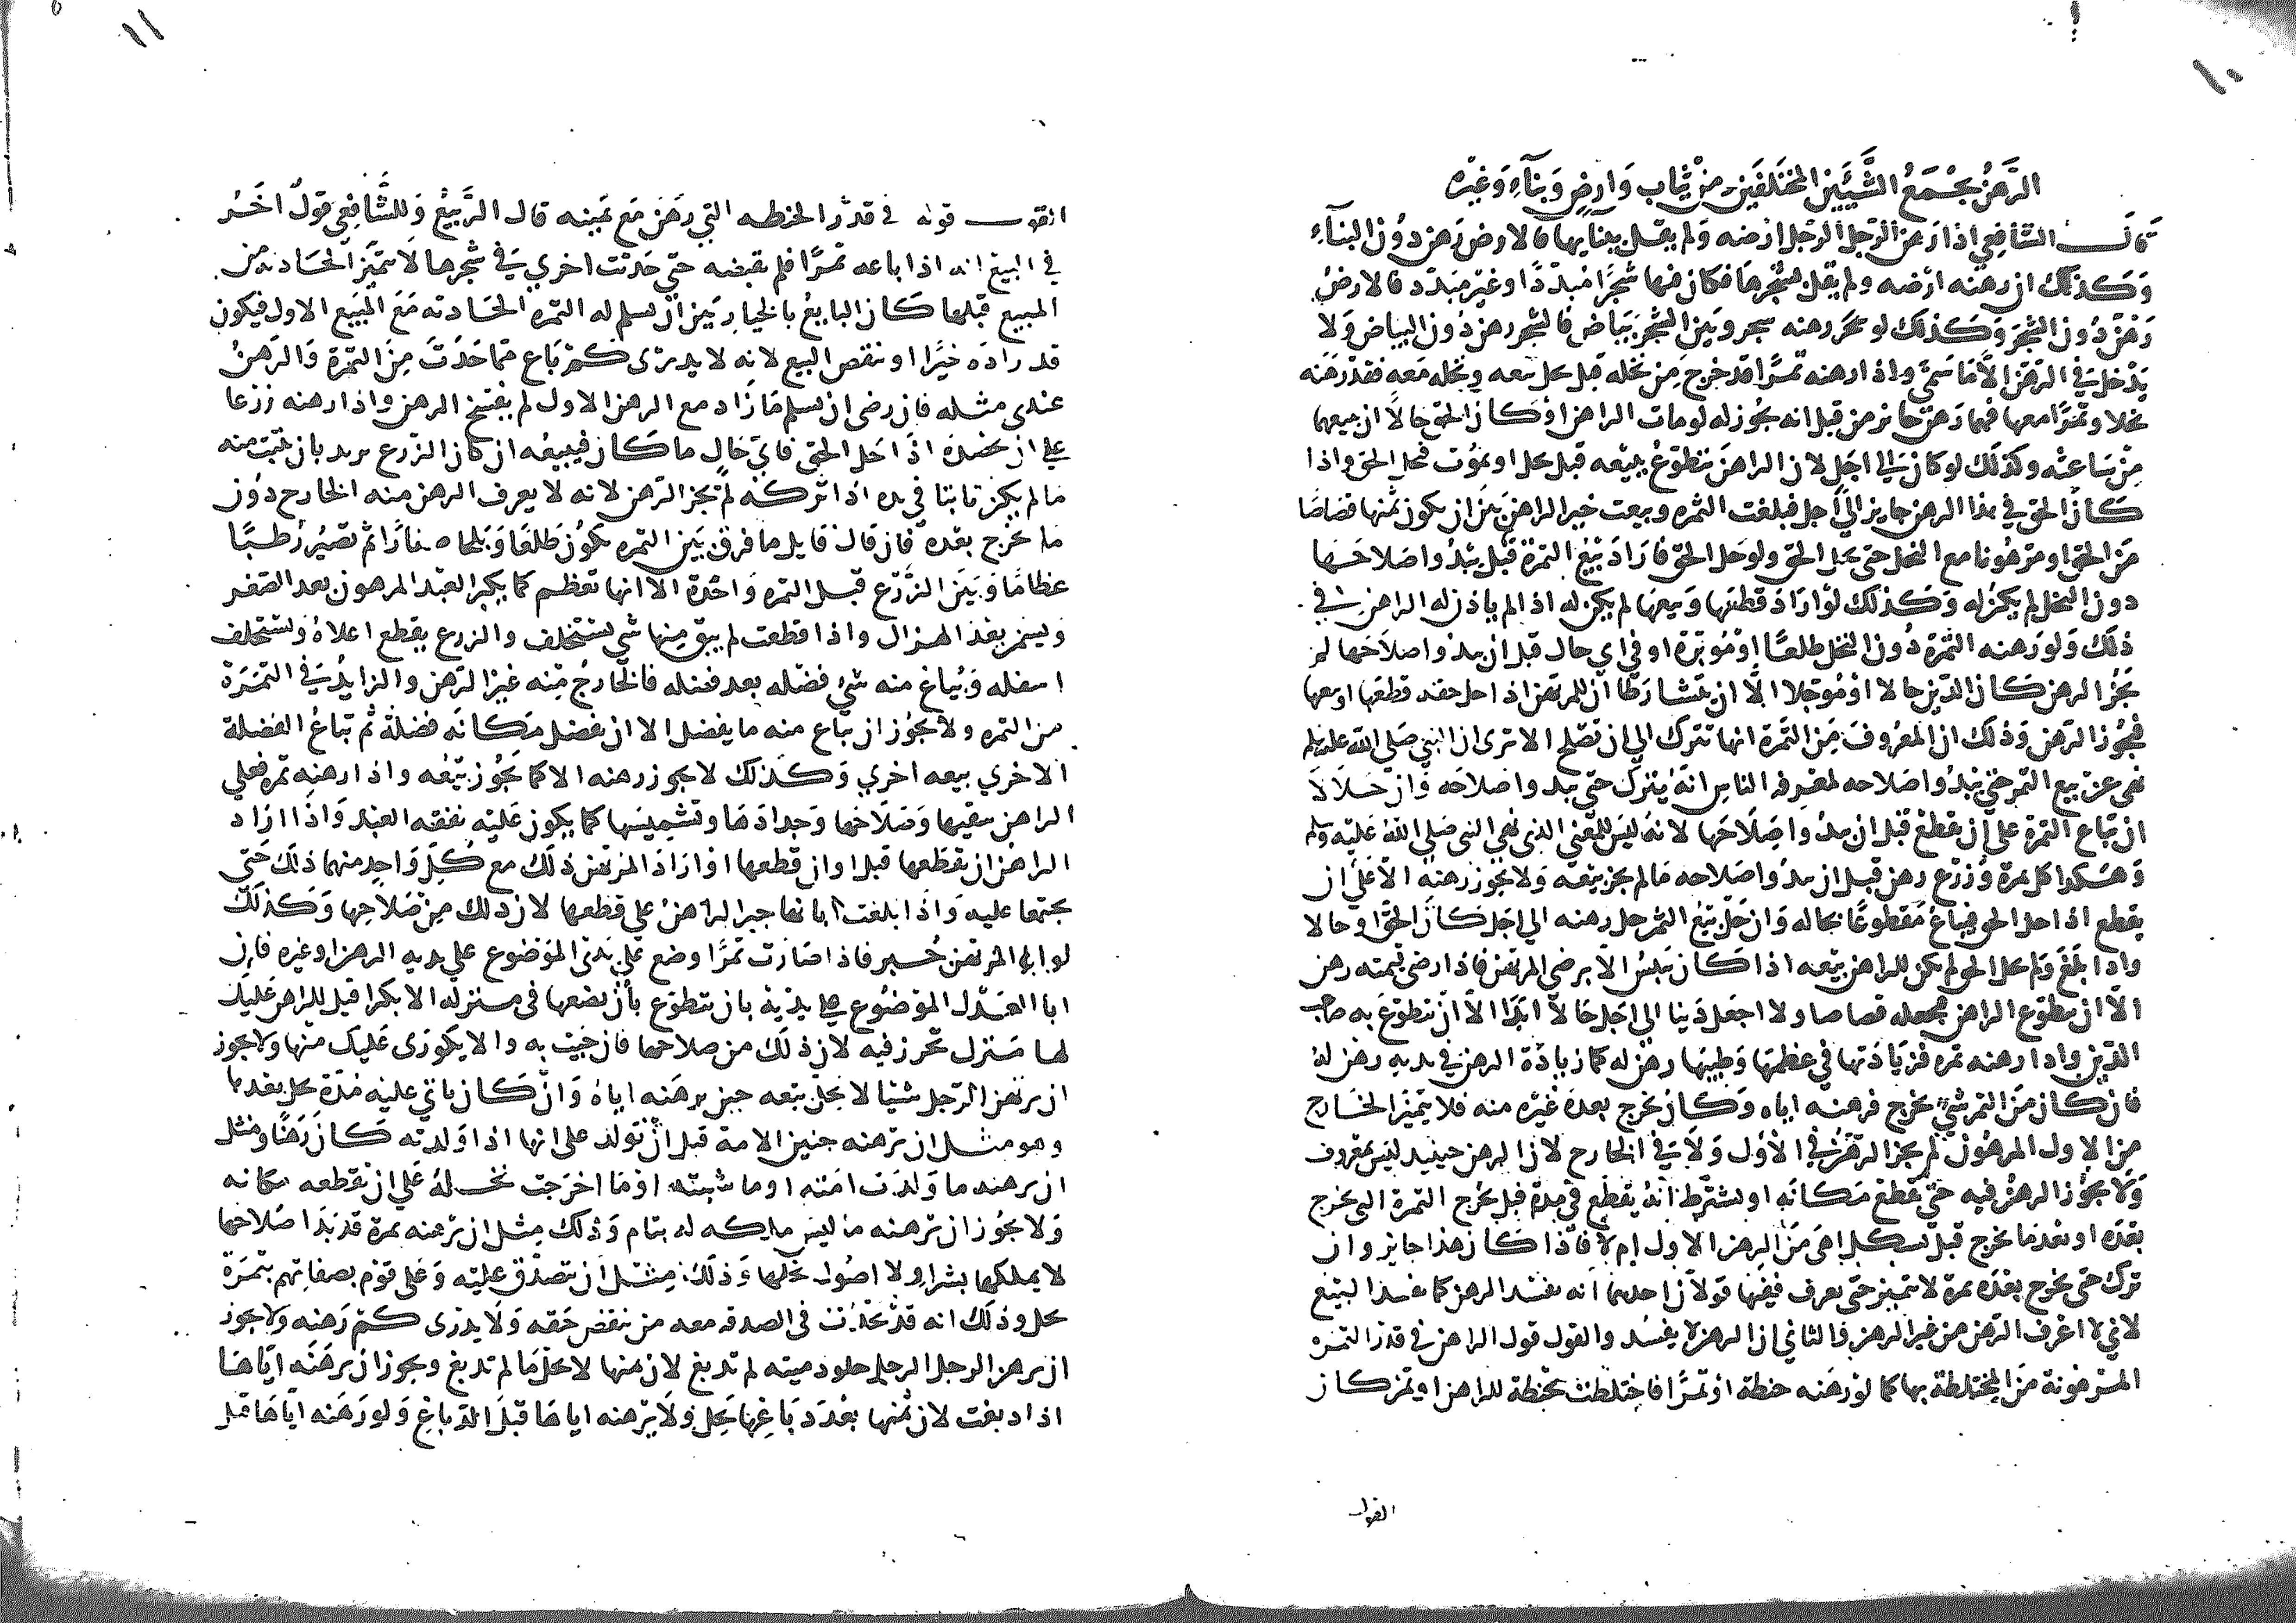 ١٠
الرَّهنُ يجْمَعُ الشَّيئَين المختَلفَين من ثياب وَارضٍ وَبنآءٍ وَغيْره
قال الشافعي اذا رَهن الرّجل الرّجل ارْضه وَلم يقل ببنايها فالارض رَهن دوُن البنآءِ
وَكَذلك ان رهنه ارْضه ولم يقل بشجرها فكان فيها شجرًا مُبدّدًا وغيْر مبَدّد فالارضُ
رَهْنٌ دُون الشجَر وَكَذلك لو رهنه شجر وبَين الشجَر بَيَاض فالشجر رهن دُون البيَاض وَلا
يَدْخل في الرّهْن الا مَا سَمىّ واذا رهنه ثمرًا قد خرج من نخله قبل يحل بيعه ونخله مَعه فقد رَهَنه
نخلا وثمرًا معها فهما رَهن جايز من قبل انه يجُوز له لو مات الراهن اوْ كان الحق حَالاً ان يبيعهما
مِنْ سَاعته وكذلك لو كان الي اجَل لان الراهنَ يتطوّعُ ببيْعه قبل يحل او يموُت فيحل الحق واذا
كَان الحق في هذا الرهن جايز الي اجل فبلغت الثمره وبيعت خير الراهن بين ان يكون ثمنها قصاصًا
مَن الحق او مَرهُونا مع النخل حَتى يحل الحق ولو حَل الحق فارَادَ بيْعَ الثمرة قبْل يبْدُوا صَلاحَها
دون النخل لم يكن له وَكَذلك لوْ ارَادَ قطعَها وَبيعَها لم يكن له اذا لم ياذن له الراهن في
ذلك وَلو رَهنه الثمرَة دُون النخل طلعًا اوْ مُوبَرَة او في اي حال قبل ان يبدوا صلاحَها لم
يَجُز الرهن كان الدّين حَالا اوْ مُوَجلا الاّ ان يتَشارَطا ان للمرتهن اذا حل حقه قطعَها او بيعها
فيجُوز الرّهن وَذلك ان المعْرُوفَ مَن الثمرَة انها تترك الي ان تصْلح الا ترى ان النبي صَلى الله عليه وسلم
نهى عن بيع الثمر حتى يبْدُوا صَلاحه لمعْرفة الناس انهُ يُترك حَتى يبدوا صَلاحَه وَان حَلاَلا
ان تبَاع الثمرة على ان تقطعْ قبل ان يبدُوا صَلاَحَها لانهُ ليْسَ المعْني الذي نهي النبي صَلي اللهُ عَليْه وَسلم
وَهَكذا كل ثمرة وَزرْع رهن قبل ان يبدُوا صَلاحه مَا لم يجز بيْعه وَلا يجُوز رهنهُ الاّ عَلَي ان
يقطع اذا حل الحق فيبَاعُ مَقطوعًا بحاله وَان حَلّ بيْعُ الثمر حَل رهنه الي اجَل كَان الحَقّ او حَالا
واذا بَلغَ وَلم يحل الحق لم يكن للراهن بيْعه اذا كان يَيْبسُ الا برضي المرتهن فاذا رضي فثمنه رهن
الاّ ان يتطوّع الراهن فيجعله قصاصا ولا اجعَل دَينا الي اجَل حَالا ابَدًا الاّ انْ يتطوّعَ به صَاحب
الدّين واذا رهنه ثمره فزيَادَتها في عظمَها وَطيبَها رهنٌ له كما زيادَة الرهن في يديه رهْن لهُ
فان كان مَن الثمر شيءٌ يخرج فرهنه اياه وَكَان يخرُج بعدَهُ غيْرَه منه فلا يتميّز الخَارج
من الاول المرهُون لم يجز الرّهْنُ في الأوّل وَلا في الخارج لان الرهن حينيد ليْسَ بمعْرُوف
وَلا يجُوز الرهنُ فيه حَتي يقطعَ مَكَانَه او يُشترَط انهُ يقطع في مدة قبل يخرُج الثمرة التي تخرج
بَعْدَه او بعْدَ مَا يخرج قبل يُشكل اهيَ مَن الرهن الاول ام لاَ فاذا كَان هذا جايز وان
ترك حتى يخرج بعْدَه ثمرة لا تتميّز حَتى تعرف ففيهَا قولاَن احدهمَا انه يفسُد الرهن كما يفسُد البيْع
لاني لا اعْرف الرّهن من غير الرهن والثاني ان الرهن لا يفسُد والقول قول الراهن في قدر الثمره
المرهونة مَن المختلطة بها كما لو رَهنه حنطة اوْ تمرًا فاختلطت بحنطة للراهن او تمر كان
القول

١١
القول قوله في قدرْ الحنطه التي رهَن مَع يمينه قال الرَّبيعُ وَللشَّافعي قولٌ اخَرُ
في البيع انه اذا باعه ثمرًا فلم يقبضه حتي حَدَثت اخري في شجرها لا تتميّز الحَادثه من
المبيع قبْلها كَان البايعُ بالخيار بَين ان يسلم له الثمره الحَادثه مَعَ المبَيع الاول فيكون
قد زادَه خيرًا او ينقض البيع لانه لا يدرى كمْ بَاع ممّا حَدَثَ مِنَ الثمرة وَالرهنُ
عندي مثله فان رضى ان يسلم مَا زَاد مع الرهن الاول لم يفسَخ الرهن واذا رهنه زرعا
علي ان يحصُدَه اذَا حَل الحق فايّ حَالٍ ما كَان فيبيعُه ان كان الزّرع يزيد بان ينبُت منه
مَا لم يكن نابتا في يده اذا تركه لم يَجز الرّهن لانه لا يعرف الرهن منه الخارج دوُن
مَا يخرُج بعْدَه فان قال قايل ما فرق بَين الثمره تكوُن طَلعًا وَبَلحا صغارًا ثم تَصيُر رُطبًا
عظامًا وَبَيَن الزَّرْع قبل الثمره وَاحْدَة الا انها تعظم كما يكبر العبْد المرهون بعد الصّغر
ويسمن بعْدَ الهزال واذا قطعت لم يبق منها شي يستخلف والزرع يقطع اعلاهُ ويستخلف
اسفله وَيُباع منه شيْ فضْله بعد فضله فالخارجُ مِنه غيْر الرّهن والزايدُ في الثمَرَة
من الثمره ولا يجُوز ان يُبَاع منه ما يفضل الا ان يفصل مَكانَه فضلة ثُمَّ تبَاعُ الفضلة
الاخري بيعه اخري وَكَذلك لا يجوز رهنه الا كما يجُوز بيْعُه واذا رهنه ثمره فعلي
الراهن سَقيُها وَصَلاحَها وَجدادَهَا وتشميسُها كما يكون عَليْه نفقه العبْد وَاذَا ارَاد
الراهُن ان يقطَعها قبل اوان قطعها اوْ ارَادَ المرتهن ذلك مُنع كلّ وَاحِد منهما ذلكَ حَتي
يجتمعا عليه وَاذَا بلغت ابانها جبر الراهنُ علي قطعها لان ذلك مِن صَلاحِها وَكَذلكَ
لو ابي المرتهن جُبر فاذا صَارت تمرًا وضع علي يَدَي المَوْضُوع علي يديه الرهن او غيره فان
ابا العَدْل المؤضُوع علي يديْهِ بان يتطوّع بأن يضعَها في منزله الا بكرا قيل للراهن عَليْك
لها مَنزل تحرز فيه لان ذلك من صلاحها فان جيْت به والا يكْترَى عَليك منها ولا يجوز
ان يَرْهَن الرّجل شيْيًا لا يحلّ بيْعه حين يرهَنه اياهُ وَان كَان ياتي عليْه مُدّة يحل بعدها
وهو مثل ان يرْهنه جنين الامة قبل انْ تولد على انها اذا وَلدته كَان رَهْنًا ومثل
ان يرهنه ما وَلدَت امَته او ما شيته اوْ مَا اخرَجت نخلهُ عَلَي ان يقطعه مكانه
وَلا يجُوز ان يرهنه ما ليْس ملكه له بتام وَذلك مِثل ان يرْهنه ثمرة قد بَدَا صَلاحها
لا يملكها بشراٍ ولا اصُول نخلها وَذلك مثل ان يتصدّق عليْه وَعَلى قوْم بصفاتهم بثمَرَة
نخل وذلك انه قدْ يحْدُث في الصدقه معه من ينقض حَقه وَلَا يدْرَى كمْ رَهنه ولا يجوز
ان يرهن الرجل الرجل جلود ميته لم تدبغ لان ثمنها لا يحلّ مَا لم تدبغ ويجوز ان يرهَنَه ايّاهَا
اذا دبغت لان ثمنها بعْدَ دبَاغها يَحل وَلَا يرْهنه اياهَا قبلَ الدّباغِ وَلو رَهَنه ايّاهَا قبل